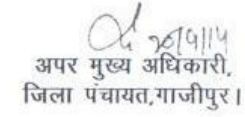 अपर मुख्य अधिकारी,
जिला पंचायत,गाजीपुर।